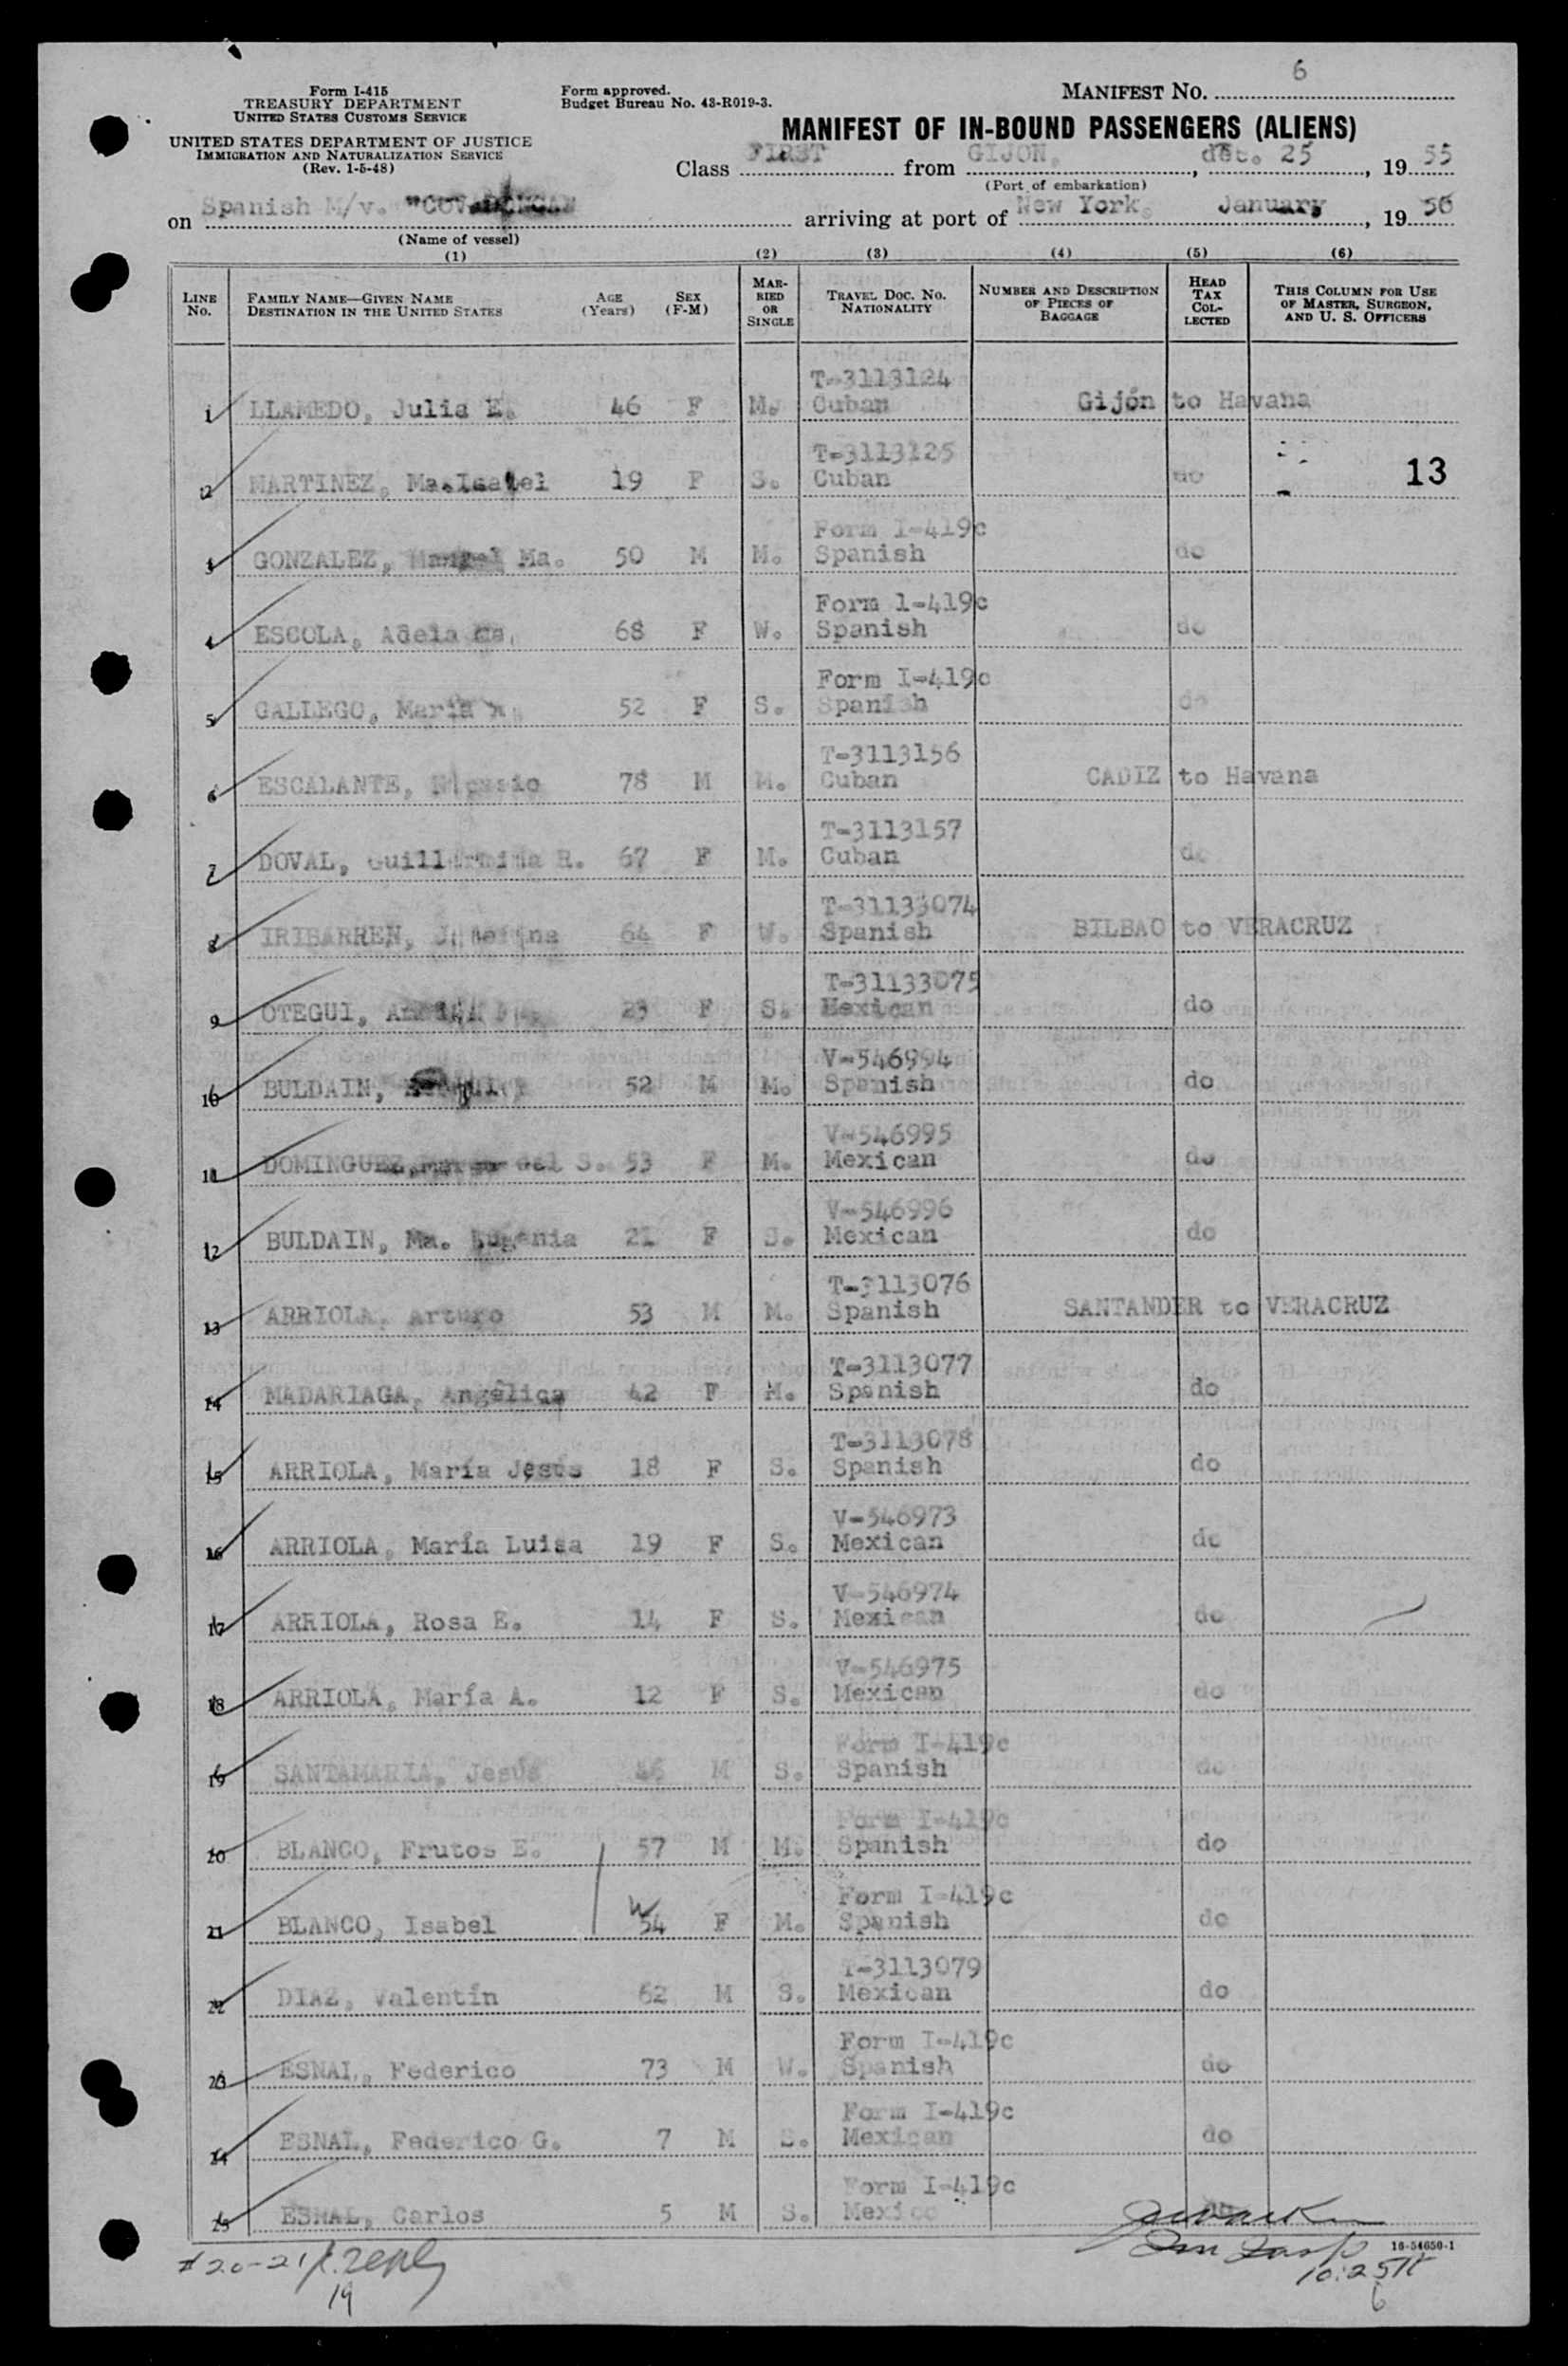 Form I-415
TREASURY DEPARTMENT
UNITED STATES CUSTOMS SERVICE
UNITED STATES DEPARTMENT OF JUSTICE
IMMIGRATION AND NATURALIZATION SERVICE
(Rev. 1-5-48)
Form approved.
Budget Bureau No. 43-R019-3.
MANIFEST NO. 6
MANIFEST OF IN-BOUND PASSENGERS (ALIENS)
Class FIRST from GIJON, dec. 25, 1955
(Port of embarkation)
on Spanish M/v. arriving at port of New York, January, 1956
(Name of vessel)
(1) (2) (3) (4) (5) (6)
LINE No. FAMILY NAME—GIVEN NAME DESTINATION IN THE UNITED STATES AGE (Years) SEX (F-M) MARRIED OR SINGLE TRAVEL DOC. NO. NATIONALITY NUMBER AND DESCRIPTION OF PIECES OF BAGGAGE HEAD TAX COLLECTED THIS COLUMN FOR USE OF MASTER, SURGEON, AND U. S. OFFICERS
T-3113124
1 LLAMEDO, Julia E. 46 F M. Cuban Gijón to Havana
T-3113125
2 MARTINEZ, Ma.Isabel 19 F S. Cuban do 13
Form I-419c
3 GONZALEZ, Ma. 50 M M. Spanish do
Form 1-419c
4 ESCOLA, Adela 68 F W. Spanish do
Form I-419c
5 GALLEGO, María 52 F S. Spanish do
T-3113156
6 ESCALANTE, 78 M M. Cuban CADIZ to Havana
T-3113157
7 DOVAL, Guillermina R. 67 F M. Cuban do
T-31133074
8 IRIBARREN, 64 F W. Spanish BILBAO to VERACRUZ
T-31133075
9 OTEGUI, 23 F S. Mexican do
V-546994
10 BULDAIN, 52 M M. Spanish do
V-546995
11 DOMINGUEZ, del S. 53 F M. Mexican do
V-546996
12 BULDAIN, Ma. Eugenia 21 F S. Mexican do
T-3113076
13 ARRIOLA, Arturo 53 M M. Spanish SANTANDER to VERACRUZ
T-3113077
14 MADARIAGA, Angélica 42 F M. Spanish do
T-3113078
15 ARRIOLA, María Jesús 18 F S. Spanish do
V-546973
16 ARRIOLA, María Luisa 19 F S. Mexican do
V-546974
17 ARRIOLA, Rosa E. 14 F S. Mexican do
V-546975
18 ARRIOLA, María A. 12 F S. Mexican do
Form I-419c
19 SANTAMARIA, Jesús M S. Spanish do
Form I-419c
20 BLANCO, Frutos E. 57 M M. Spanish do
Form I-419c
21 BLANCO, Isabel W 54 F M. Spanish do
T-3113079
22 DIAZ, Valentín 62 M S. Mexican do
Form I-419c
23 ESNAL, Federico 73 M W. Spanish do
Form I-419c
24 ESNAL, Federico G. 7 M S. Mexican do
Form I-419c
25 ESNAL, Carlos 5 M S.
16-54650-1
# 20-21
19
6